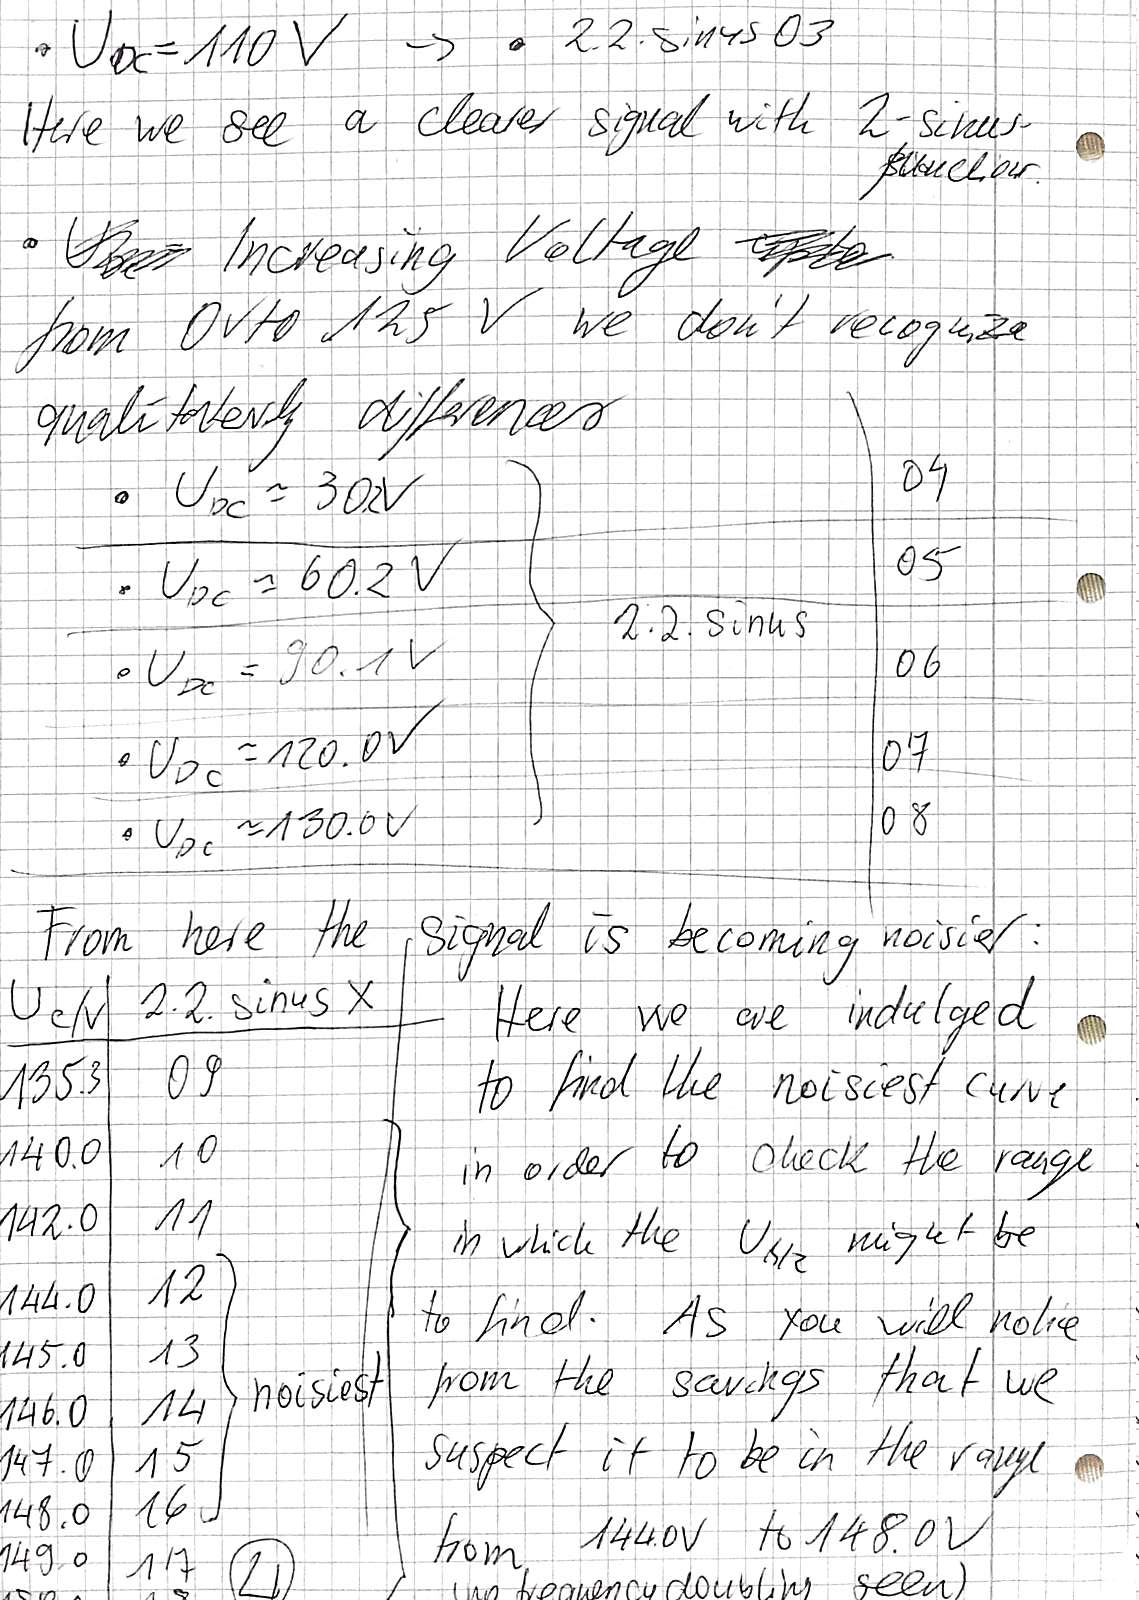 • U_DC = 110 V -> • 2.2. sinus 03
Here we see a clearer signal with 2-sinus-
function.
• Increasing Voltage
from 0V to 125 V we don't recognize
qualitatively differences
• U_DC ≈ 30.2V 04
• U_DC ≈ 60.2 V 05
2.2. sinus
• U_DC = 90.1V 06
• U_DC ≈ 120.0V 07
• U_DC ≈ 130.0V 08
From here the signal is becoming noisier:
U_c/V 2.2. sinus X
135.3 09
140.0 10
142.0 11
144.0 12
145.0 13
146.0 14
147.0 15
148.0 16
149.0 17
noisiest
21
Here we are indulged
to find the noisiest curve
in order to check the range
in which the U_λ/2 might be
to find. As you will notice
from the savings that we
suspect it to be in the range
from 144.0V to 148.0V
(no frequency doubling seen)